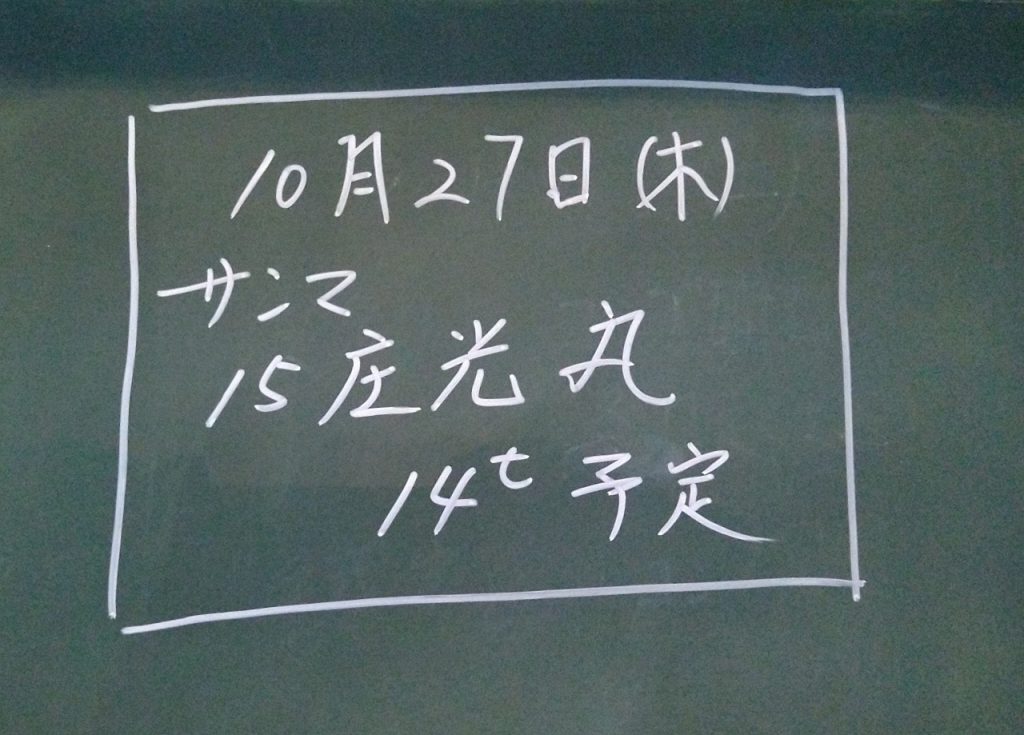 10月27日(木)
サンマ
15庄光丸
14t 予定